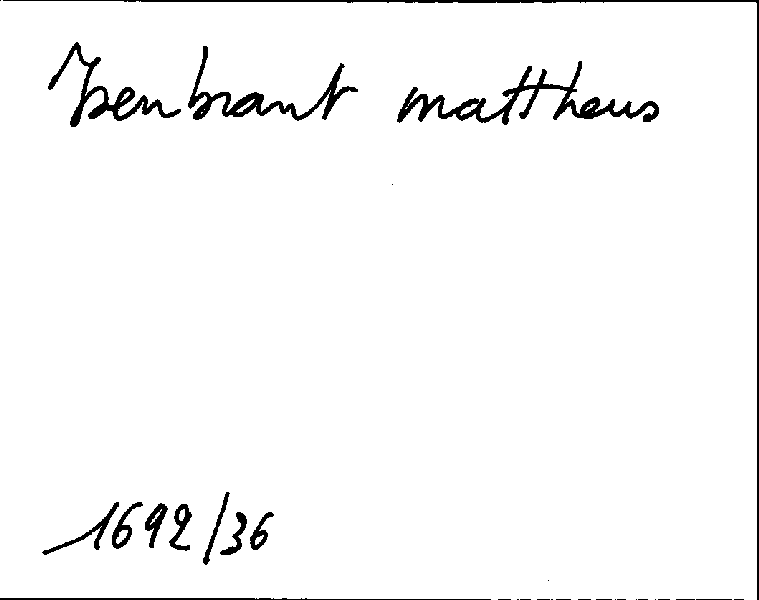 Isenbrant mattheus
1692/36